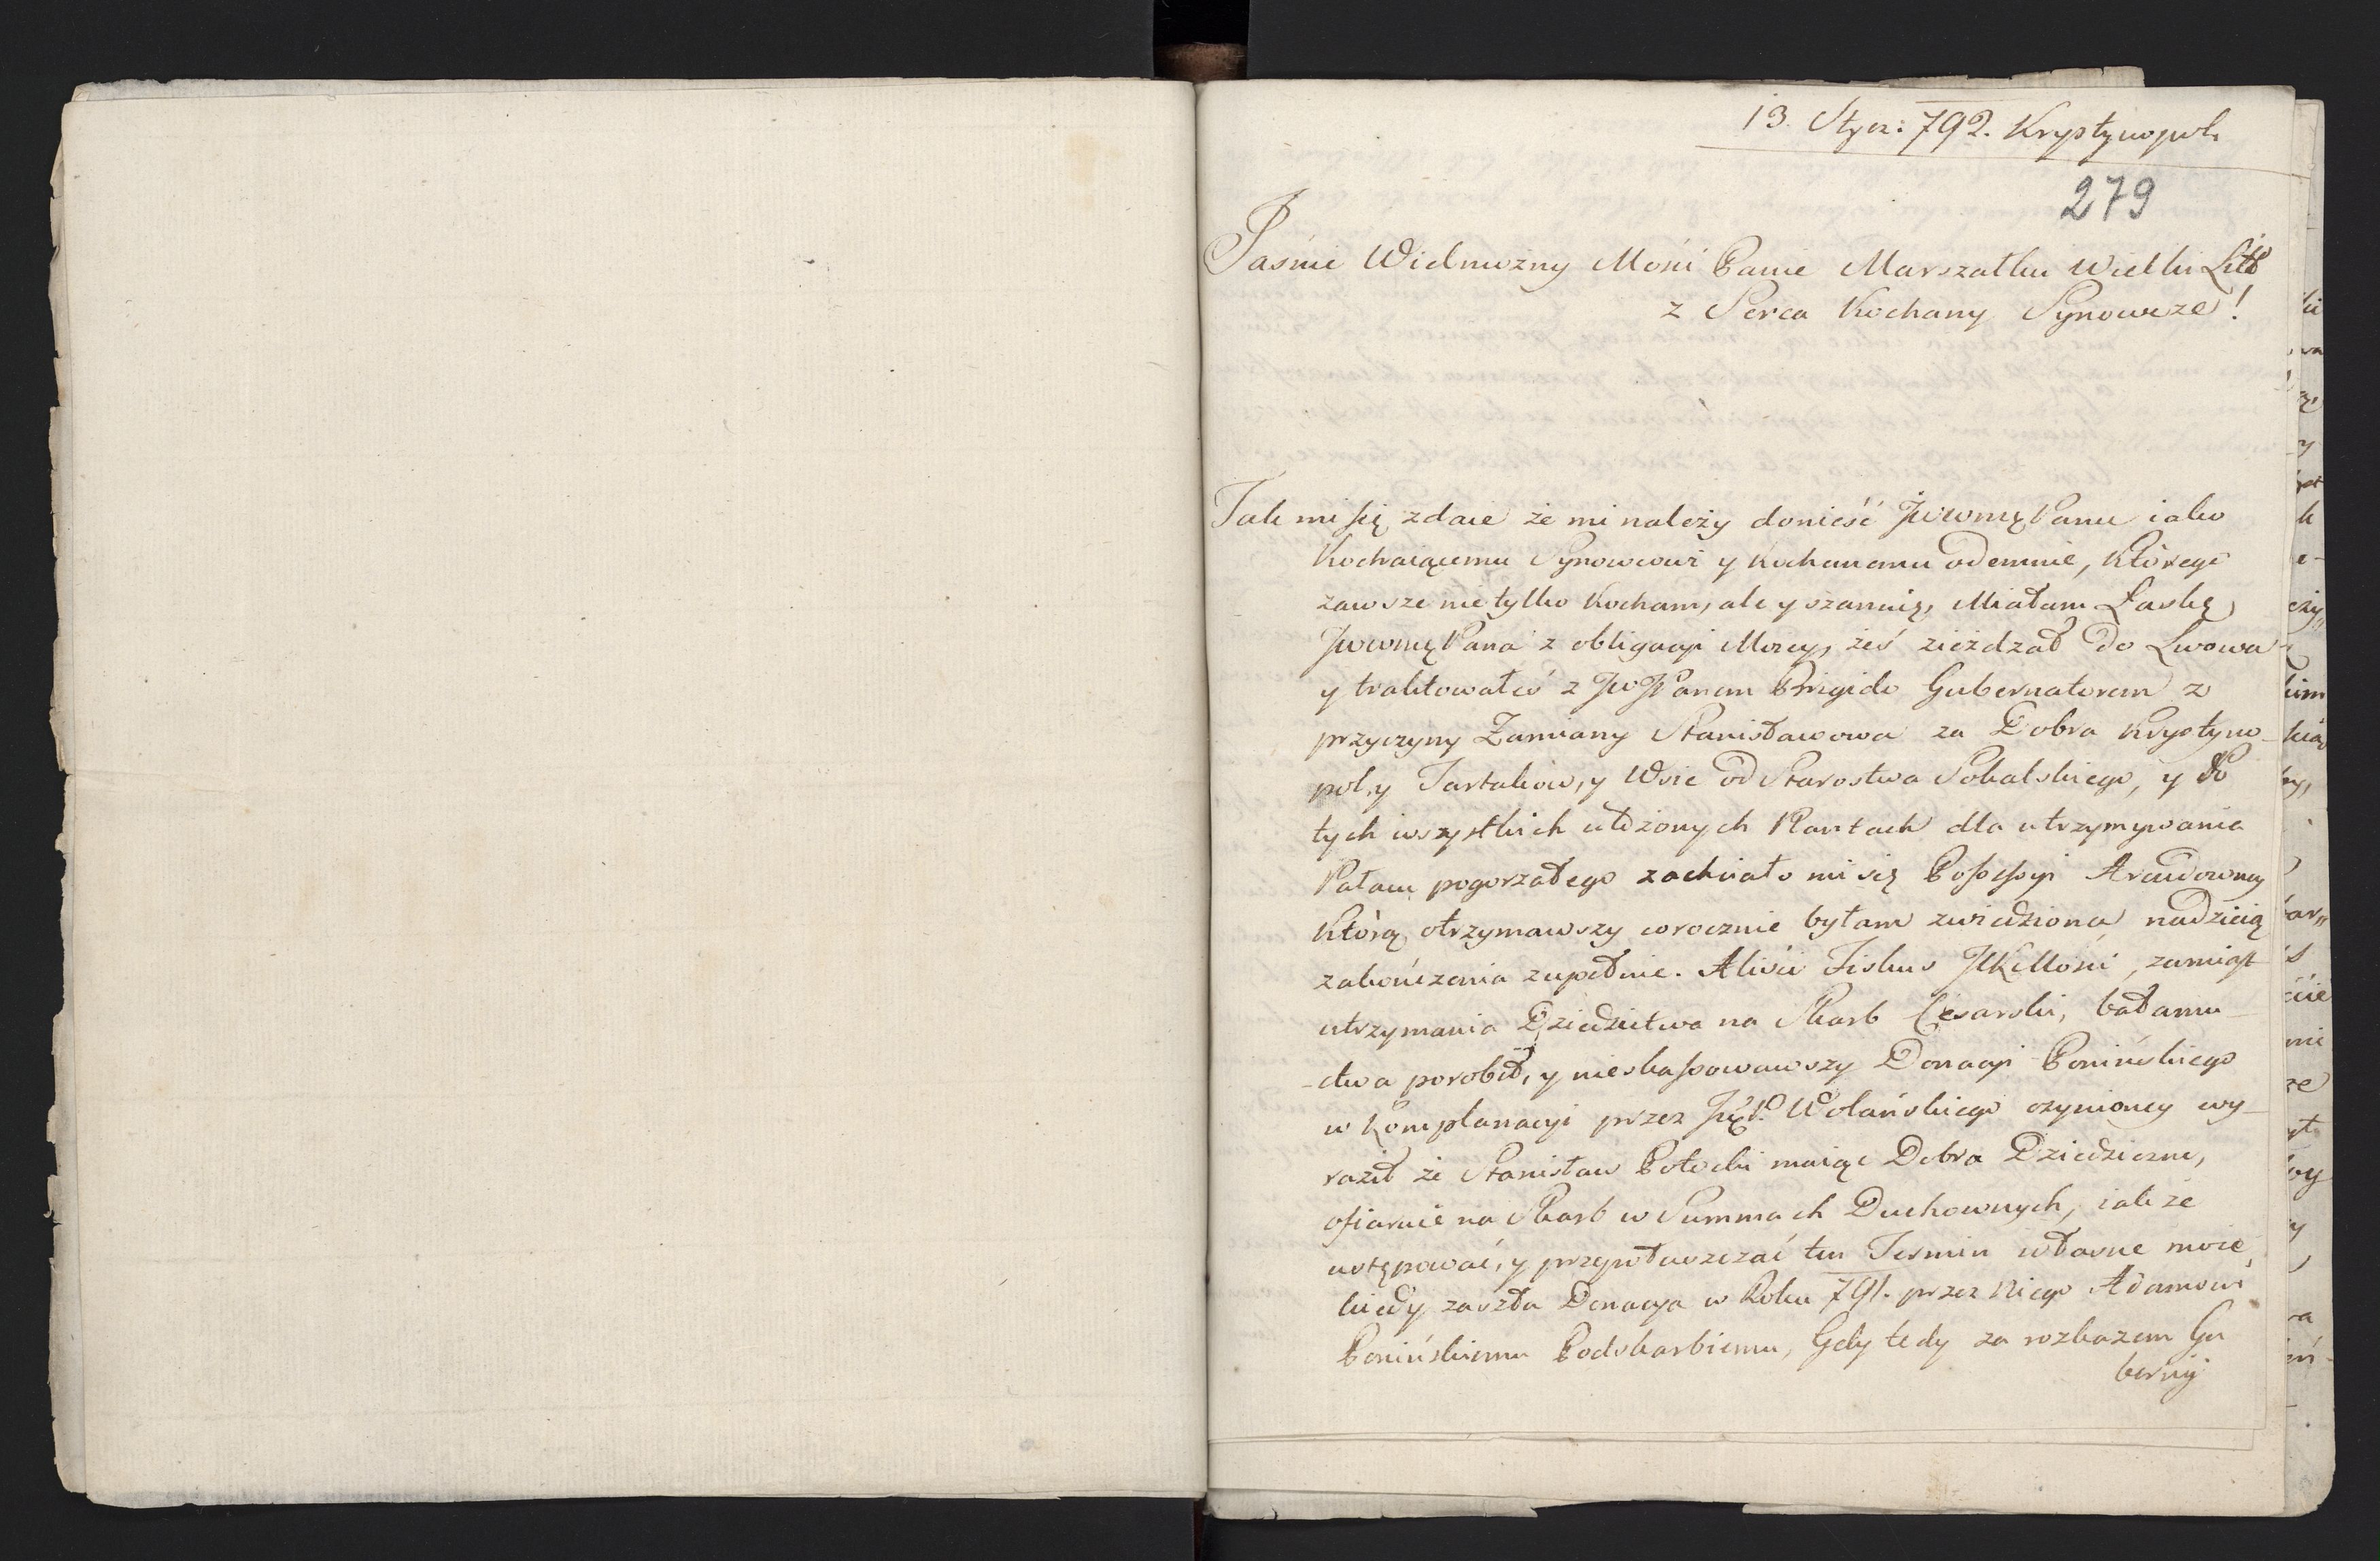 13. Stycz: 792. Krystynopol.
279
Jaśnie Wielmożny Mości Panie Marszałku Wielki Litt
z Serca Kochany Synowcze!
Tak mi się zdaie że mi należy donieść JWWmę Panu iako
Kochaiącemu Synowcowi y kochanemu odemnie, którego
zawsze nie tylko Kocham, ale y szanuię, Miałam Łaskę
JWWmę Pana z obligacyi Moiey, żeś zieżdzał do Lwowa
y traktowałeś z JWJPanem Brigido Gubernatorem z
przyczyny Zamiany Stanisławowa za Dobra Krystyno-
pol, y Tartaków, y Wsie od Starostwa Sokalskiego, y Po
tych wszystkich ułożonych Punktach dla utrzymywania
Pałacu pogorzałego zachciało mi się Possessyi Arendowney
Którą otrzymawszy corocznie byłam zwiedziona nadzieią
zakończenia zupełnie. Aliści Fiskus JKMości, zamiast
utrzymania Dziedzictwa na Skarb Cesarski, bałamu-
-ctwa porobił, y nieskassowawszy Donacyi Ponińskiego
w Komplanacyi przez JP. Wolańskiego czynioney wy-
raził że Stanisław Potocki maiąc Dobra Dziedziczne,
ofiaruie na Skarb w Summach Duchownych, iak że
ustępować, y przywłaszczać ten Termin własne moie,
kiedy zaszła Donacya w Roku 791. przez niego Adamowi
Ponińskiemu Podskarbiemu, Gdy tedy za rozkazem Gu
bernij